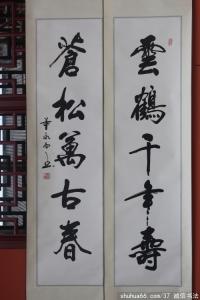 雲鶴千年壽
蒼松萬古春
shuhua66.com/37 诚信书法